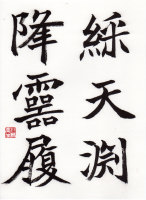 綵天渕
降靈履